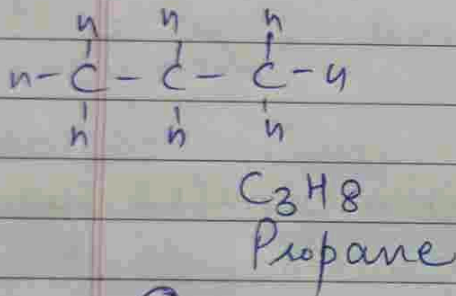 H H H
H - C - C - C - H
H H H
C3H8
Propane